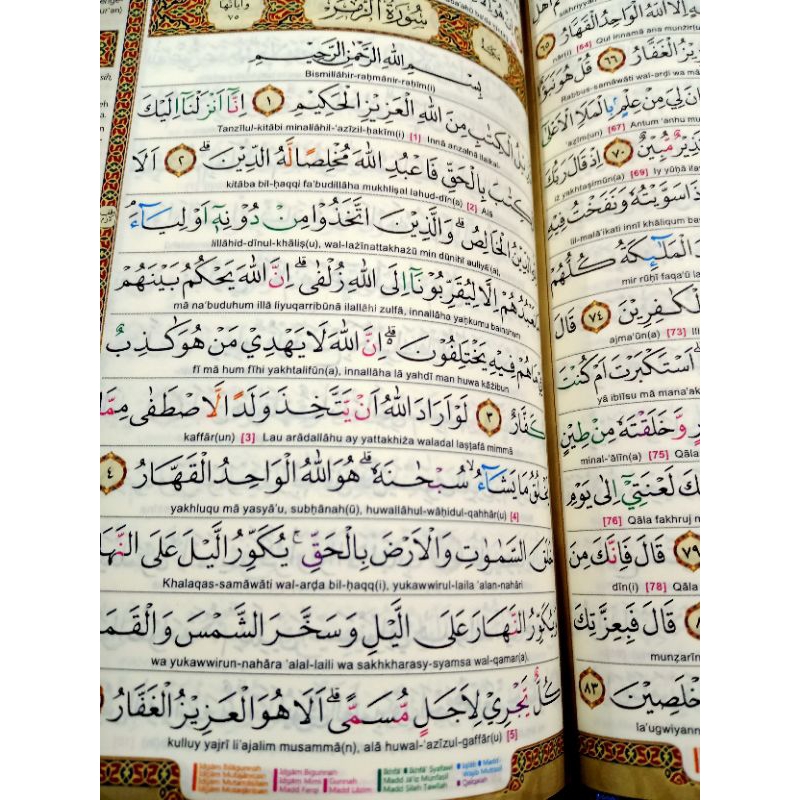 سُورَةُ الزُّمَرِ
وَآيَاتُهَا
٧٥
مَكِّيَّة
بِسْمِ اللّٰهِ الرَّحْمٰنِ الرَّحِيْمِ
Bismillāhir-raḥmānir-raḥīm(i)
الْكِتٰبِ مِنَ اللّٰهِ الْعَزِيْزِ الْحَكِيْمِ ١ اِنَّآ اَنْزَلْنَآ اِلَيْكَ
Tanzīlul-kitābi minallāhil-'azīzil-ḥakīm(i) [1] Innā anzalnā ilaikal-
بِالْحَقِّ فَاعْبُدِ اللّٰهَ مُخْلِصًا لَّهُ الدِّيْنَۗ ٢ اَلَا
kitāba bil-ḥaqqi fa'budillāha mukhliṣal lahud-dīn(a) [2] Alā
الدِّيْنُ الْخَالِصُۗ وَالَّذِيْنَ اتَّخَذُوْا مِنْ دُوْنِهٖٓ اَوْلِيَاۤءَۘ
lillāhid-dīnul-khāliṣ(u), wal-lażīnattakhażū min dūnihī auliyā(a),
اِلَّا لِيُقَرِّبُوْنَآ اِلَى اللّٰهِ زُلْفٰىۗ اِنَّ اللّٰهَ يَحْكُمُ بَيْنَهُمْ
mā na'buduhum illā liyuqarribūnā ilallāhi zulfā, innallāha yaḥkumu bainahum
فِيْهِ يَخْتَلِفُوْنَۗ اِنَّ اللّٰهَ لَا يَهْدِيْ مَنْ هُوَ كٰذِبٌ
fī mā hum fīhi yakhtalifūn(a), innallāha lā yahdī man huwa kāżibun
كَفَّارٌ ٣ لَوْ اَرَادَ اللّٰهُ اَنْ يَّتَّخِذَ وَلَدًا لَّاصْطَفٰى مِمَّا
kaffār(un) [3] Lau arādallāhu ay yattakhiża waladal laṣṭafā mimmā
يَخْلُقُ مَا يَشَاۤءُۙ سُبْحٰنَهٗۗ هُوَ اللّٰهُ الْوَاحِدُ الْقَهَّارُ ٤
yakhluqu mā yasyā'u, subḥānah(ū), huwallāhul-wāḥidul-qahhār(u) [4]
خَلَقَ السَّمٰوٰتِ وَالْاَرْضَ بِالْحَقِّۚ يُكَوِّرُ الَّيْلَ عَلَى النَّهَا
Khalaqas-samāwāti wal-arḍa bil-ḥaqq(i), yukawwirul-laila 'alan-nahāri
وَيُكَوِّرُ النَّهَارَ عَلَى الَّيْلِ وَسَخَّرَ الشَّمْسَ وَالْقَمَ
wa yukawwirun-nahāra 'alal-laili wa sakhkharasy-syamsa wal-qamar(a),
كُلٌّ يَّجْرِيْ لِاَجَلٍ مُّسَمًّىۗ اَلَا هُوَ الْعَزِيْزُ الْغَفَّارُ
kulluy yajrī li'ajalim musammā(n), alā huwal-'azīzul-gaffār(u) [5]
اِلَّا اللّٰهُ الْوَاحِدُ الْقَهَّارُ
٦٥
الْعَزِيْزُ الْغَفَّارُ ٦٦ قُلْ هُوَ
Rabbus-samāwāti wal-arḍi wa mā
لِيَ مِنْ عِلْمٍ بِالْمَلَاِ الْاَعْلٰى
'aẓīm(un) [67] Antum 'anhu mu
مُّبِيْنٌ ٧٠ اِذْ قَالَ رَبُّكَ
iż yakhtaṣimūn(a) [69] Iy yūḥā
سَوَّيْتُهٗ وَنَفَخْتُ فِيْهِ
lil-malā'ikati innī khāliqum
الْمَلٰۤىِٕكَةُ كُلُّهُمْ
mir rūḥī faqa'ū
الْكٰفِرِيْنَ ٧٤ قَالَ
ajma'ūn(a) [73]
اَسْتَكْبَرْتَ اَمْ كُنْتَ
yā iblīsu mā mana'ak
وَّخَلَقْتَهٗ مِنْ طِيْنٍ
minal-'ālīn(a) [75] Qāla
لَعْنَتِيْٓ اِلٰى يَوْمِ
[76] Qāla fakhruj
٧٩ قَالَ فَاِنَّكَ مِنَ
dīn(i) [78] Qāla
قَالَ فَبِعِزَّتِكَ
munẓarīn
٨٣
la'ugwiyann
Idgām Bigunnah
Idgām Mimi
Gunnah
Madd Farqi
Madd Lāzim
Madd Jā'iz Munfaṣil
Madd Ṣilah Ṭawīlah
Qalqalah